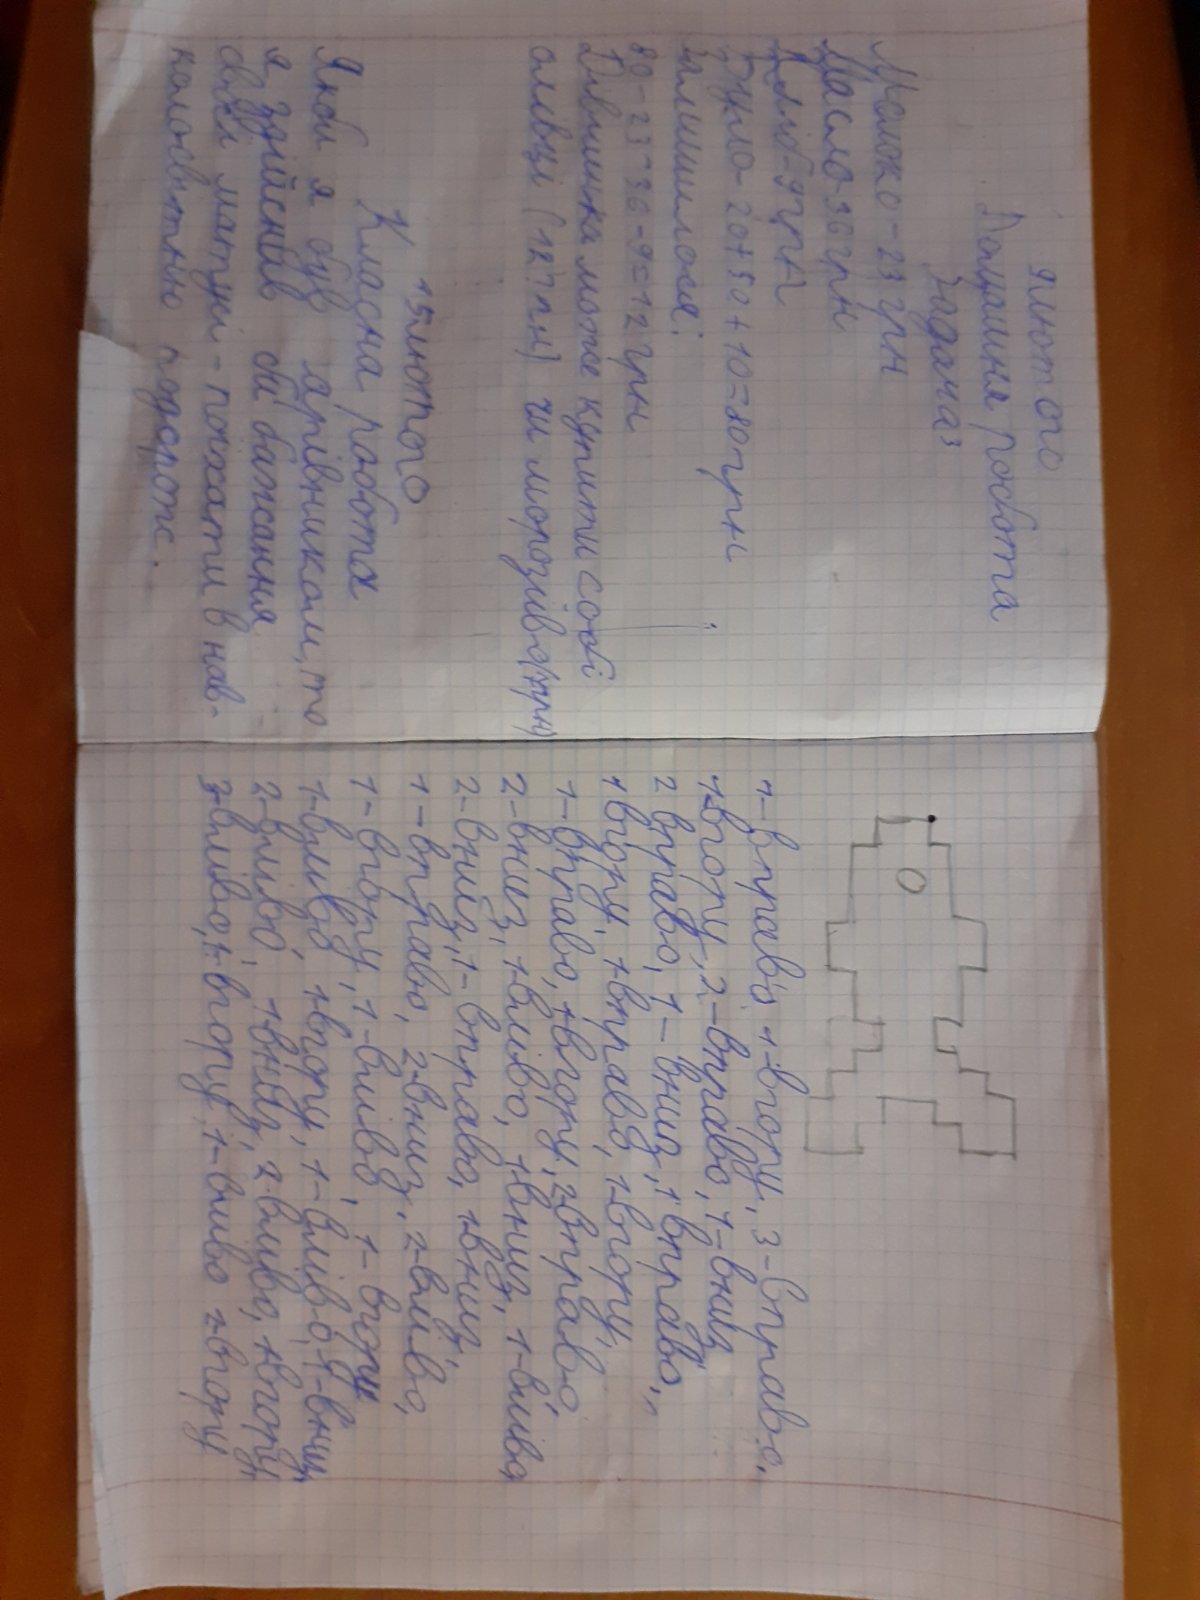 9 лютого
Домашня робота
Задача 3
Молоко-23 грн
Масло-36 грн
Хліб-9 грн
Було-20+50+10=80 грн
Залишилося:
80-23-36-9=12 грн
Дівчинка може купити собі
олівці (12 грн) чи морозиво
15 лютого
Класна робота
Якби я був чарівником, то
я здійснив би бажання
своєї матусі - поїхати в нав-
колосвітню подорож.
1-вправо, 1-вгору, 3-вправо,
1-вгору, 2-вправо, 1-вниз,
2 вправо, 1-вниз, 1 вправо,
1 вгору, 1 вправо, 1-вгору,
1-вправо, 1 вгору, 2 вправо,
2-вниз, 1 вліво, 1 вниз, 1-вліво,
2-вниз, 1-вправо, 1 вниз,
1-вправо, 2 вниз, 2-вліво,
1-вгору, 1-вліво, 1-вгору
1-вліво, 1 вгору, 1-вліво, 1-вниз,
2-вліво, 1 вниз, 2 вліво, 1 вгору,
3-вліво, 1-вгору, 1-вліво 2 вгору